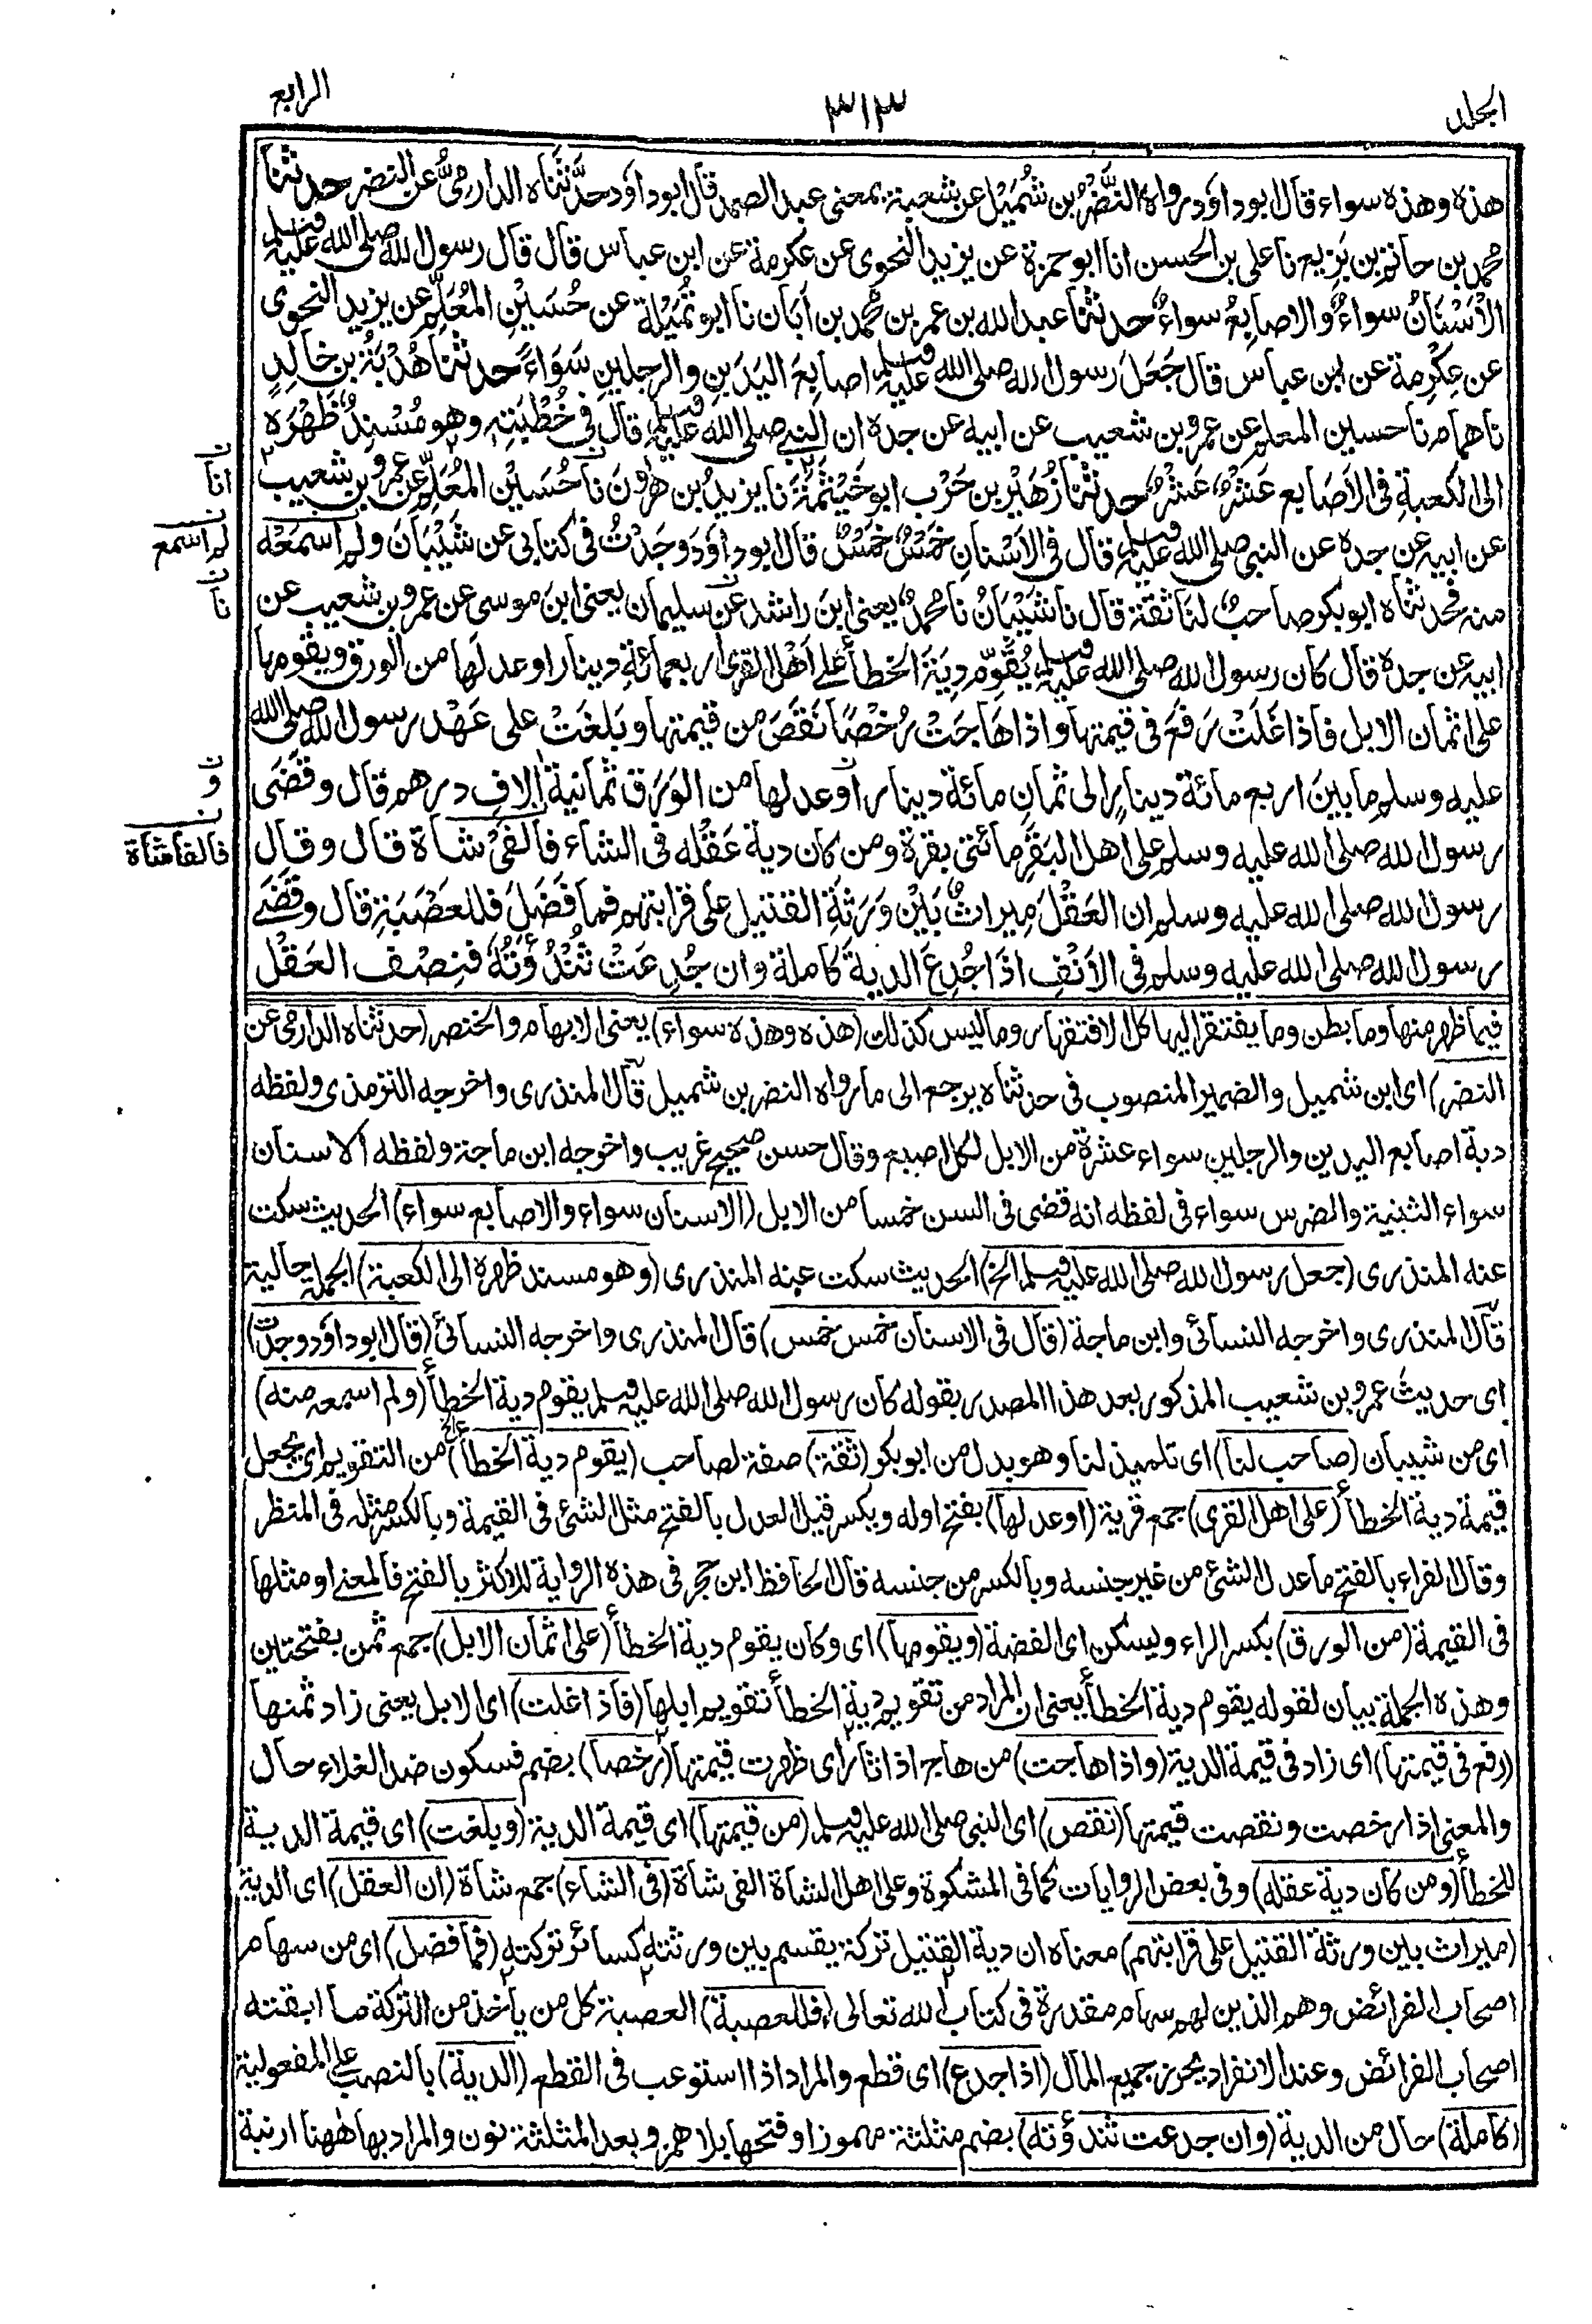 المجلد
٣١٣
الرابع
هذه وهذه سواء قال ابو داؤد رواه النَّضْرُ بن شُمَيْل عن شعبة بمعنى عبد الصمد قال ابو داؤد حدَّثَناه الدارمىُّ عن النضر حدثنا
محمد بن حاتم بن بَزِيع نا على بن الحسن انا ابو حمزة عن يزيد النحوى عن عكرمة عن ابن عباس قال قال رسول الله صلى الله عليه وسلم
الاَسْنَانُ سواءٌ والاصابِعُ سواءٌ حدثنا عبد الله بن عمر بن محمد بن اَبَان نا ابو تُمَيْلة عن حُسَيْنِ المُعَلِّمِ عن يزيد النحوى
عن عِكْرِمة عن ابن عباس قال جَعَلَ رسول الله صلى الله عليه وسلم اصابِعَ اليَدَينِ والرجلينِ سَوَاءً حدثنا هُدْبَةُ بن خالدٍ
نا همام نا حسين المعلم عن عمرو بن شعيب عن ابيه عن جده ان النبى صلى الله عليه وسلم قال فى خُطْبَتِه وهو مُسْنِدٌ ظَهْرَه
الى الكعبةِ فى الاَصَابِع عَشْرٌ عَشْرٌ حدثنا زُهَيْرُ بن حَرْب ابو خَيْثَمَةَ نا يزيدُ بن هٰرُون نا حُسَيْن المُعَلِّمُ عن عمرو بن شعيب
انا
عن ابيه عن جده عن النبى صلى الله عليه وسلم قال فى الاَسْنانِ خَمْسٌ خَمْسٌ قال ابو داؤد وَجَدْتُ فى كتابى عن شَيْبَانَ ولم اسمَعْه
لم اسمع
منه فحدثناه ابو بكر صاحبٌ لنا ثقة قال نا شَيْبَانُ نا محمدٌ يعنى ابنَ راشد عن سليمان يعنى ابنَ موسى عن عمرو بن شعيب عن
نا
ابيه عن جده قال كان رسول الله صلى الله عليه وسلم يُقَوِّم دِيَةَ الخطأ على اَهْلِ القرى اربعمائةِ دينار او عدلها من الورق ويقومها
على اثمان الابل فاذا غَلَتْ رَفَعَ فى قيمتها واذا هَاجَتْ رُخْصًا نَقَصَ من قيمتها وبَلَغَتْ على عَهْد رسول الله صلى الله
عليه وسلم ما بينَ اربع مائة دينارٍ الى ثمانِ مائة دينار او عدلها من الوَرَق ثمانيةَ اٰلافِ درهم قال وقَضَى
و
رسول الله صلى الله عليه وسلم على اهل البَقَرِ مائتى بقرة ومن كان دية عَقْله فى الشاء فالفَىْ شاة قال وقال
فالفا شاة
رسول الله صلى الله عليه وسلم ان العَقْلَ مِيراثٌ بَيْن وَرَثَةِ القتيل على قرابتهم فما فَضَلَ فللعَصَبَةِ قال وقَضَى
رسول الله صلى الله عليه وسلم فى الاَنْفِ اذَا جُدِعَ الديةَ كاملة وان جُدِعَتْ ثُنْدُؤَتُهُ فنِصْف العَقْل
فيما ظهر منها وما بطن وما يفتقر اليها كل الافتقار وما ليس كذلك (هذه وهذه سواء) يعنى الابهام والخنصر (حدثناه الدارمى عن
النضر) اى ابن شميل والضمير المنصوب فى حدثناه يرجع الى ما رواه النضر بن شميل قال المنذرى واخرجه الترمذى ولفظه
دية اصابع اليدين والرجلين سواء عشرة من الابل لكل اصبع وقال حسن صحيح غريب واخرجه ابن ماجة ولفظه الاسنان
سواء الثنية والضرس سواء فى لفظه انه قضى فى السن خمسا من الابل (الاسنان سواء والاصابع سواء) الحديث سكت
عنه المنذرى (جعل رسول الله صلى الله عليه وسلم الخ) الحديث سكت عنه المنذرى (وهو مسند ظهره الى الكعبة) الجملة حالية
قال المنذرى واخرجه النسائى وابن ماجة (قال فى الاسنان خمس خمس) قال المنذرى واخرجه النسائى (قال ابو داؤد وجدت)
اى حديث عمرو بن شعيب المذكور بعد هذا المصدر بقوله كان رسول الله صلى الله عليه وسلم يقوم دية الخطأ (ولم اسمعه منه)
اى من شيبان (صاحب لنا) اى تلميذ لنا وهو بدل من ابو بكر (ثقة) صفة لصاحب (يقوم دية الخطأ) الخ من التقويم اى يجعل
قيمة دية الخطأ (على اهل القرى) جمع قرية (او عدلها) بفتح اوله ويكسر قيل العدل بالفتح مثل الشئ فى القيمة وبالكسر مثله فى المنظر
وقال الفراء بالفتح ما عدل الشئ من غير جنسه وبالكسر من جنسه قال الحافظ ابن حجر فى هذه الرواية للاكثر بالفتح فالمعنى او مثلها
فى القيمة (من الورق) بكسر الراء ويسكن اى الفضة (ويقومها) اى وكان يقوم دية الخطأ (على اثمان الابل) جمع ثمن بفتحتين
وهذه الجملة بيان لقوله يقوم دية الخطأ يعنى ان المراد من تقويم دية الخطأ تقويم ابلها (فاذا غلت) اى الابل يعنى زاد ثمنها
(رفع فى قيمتها) اى زاد فى قيمة الدية (واذا هاجت) من هاج اذا ثار اى ظهرت قيمتها (رخصا) بضم فسكون ضد الغلاء حال
والمعنى اذا رخصت ونقصت قيمتها (نقص) اى النبى صلى الله عليه وسلم (من قيمتها) اى قيمة الدية (وبلغت) اى قيمة الدية
للخطأ (ومن كان دية عقله) وفى بعض الروايات كما فى المشكوة وعلى اهل الشاة الفى شاة (فى الشاء) جمع شاة (ان العقل) اى الدية
(ميراث بين ورثة القتيل على قرابتهم) معناه ان دية القتيل تركة يقسم بين ورثته كسائر تركته (فما فضل) اى من سهام
اصحاب الفرائض وهم الذين لهم سهام مقدرة فى كتاب الله تعالى (فللعصبة) العصبة كل من ياخذ من التركة ما ابقته
اصحاب الفرائض وعند الانفراد يحرز جميع المال (اذا جدع) اى قطع والمراد اذا استوعب فى القطع (الدية) بالنصب على المفعولية
(كاملة) حال من الدية (وان جدعت ثندؤته) بضم مثلثة مهموزا وفتحها بلا همز وبعد المثلثة نون والمراد بها ههنا ارنبة